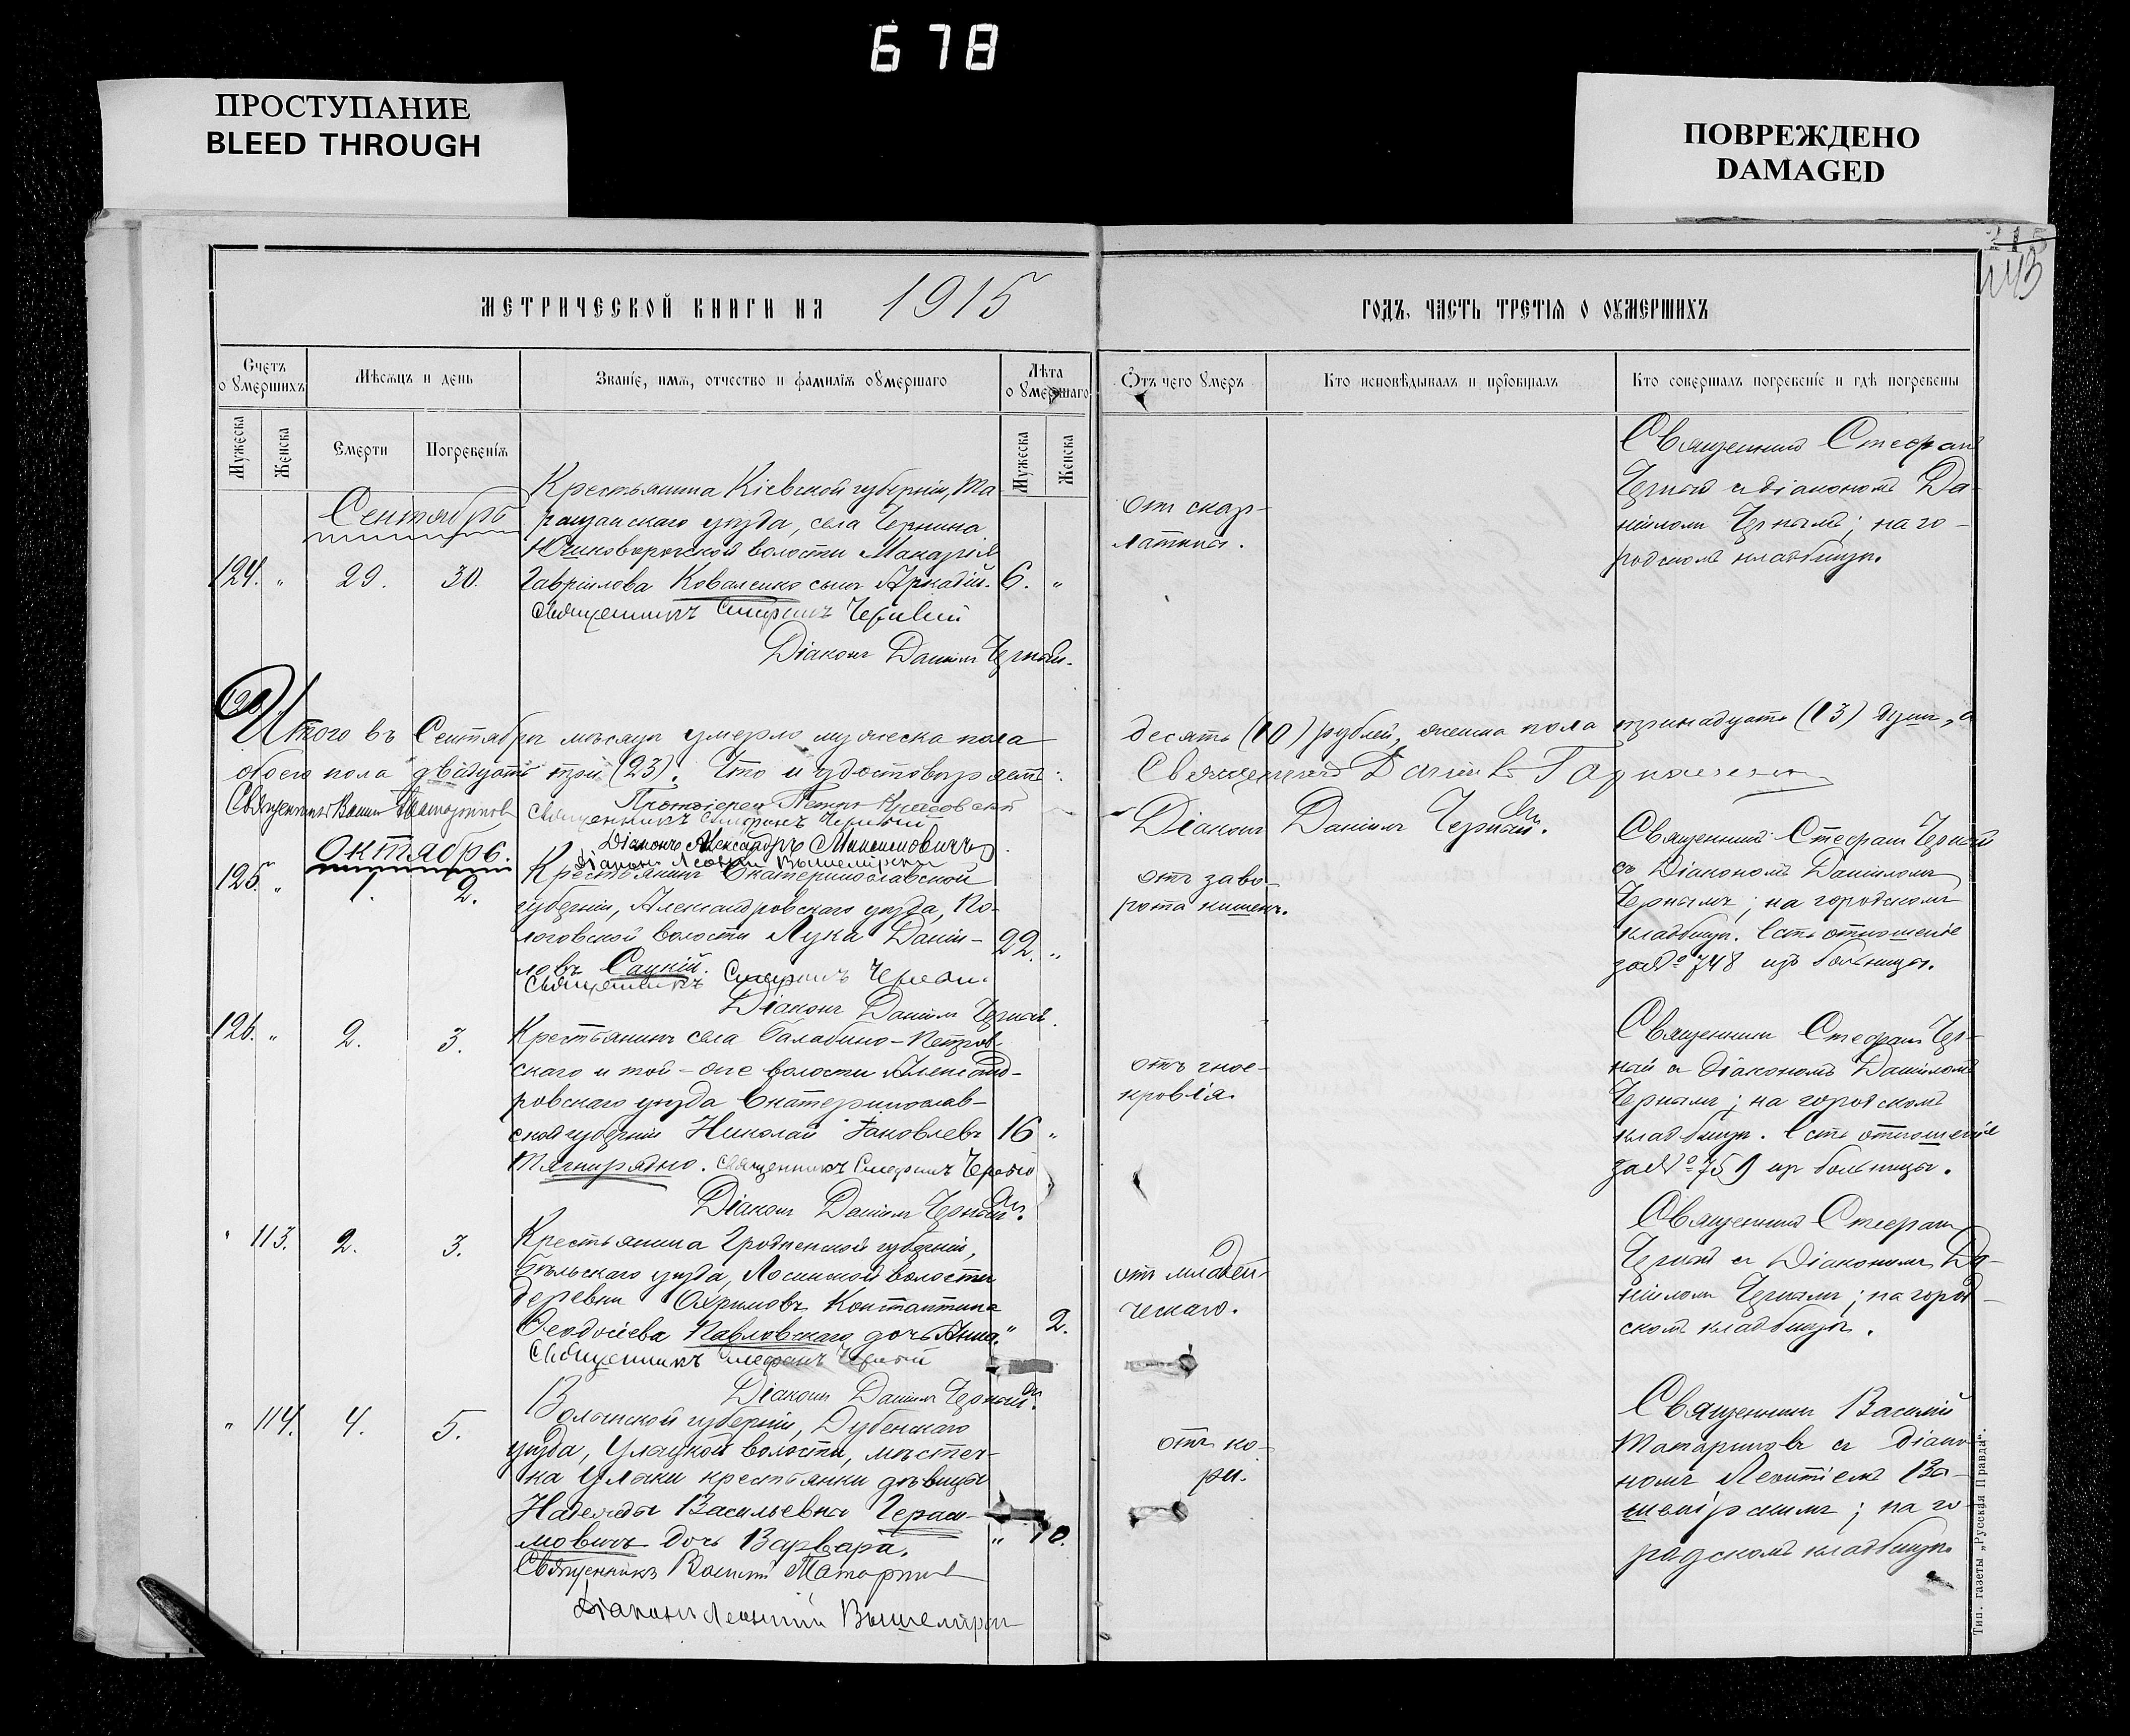 678
ПРОСТУПАНИЕ
BLEED THROUGH
ПОВРЕЖДЕНО
DAMAGED
215
МЕТРИЧЕСКОЙ КНИГИ НА 1915
ГОДЪ, ЧАСТЬ ТРЕТІЯ О ОУМЕРШИХЪ
Счетъ о умершихъ
Мѣсяцъ и день
Званіе, имя, отчество и фамилія оумершаго
Лѣта о умершаго
Отъ чего умеръ
Кто исповѣдывалъ и пріобщалъ
Кто совершалъ погребеніе и гдѣ погребены
Мужеска
Женска
Смерти
Погребенія
Мужеска
Женска
Сентябрь
124. " 29. 30.
Крестьянина Кіевской губерніи, Та-
ращанскаго уѣзда, села Чернина
волости Макарія
Гавріилова Коваленко сынъ Аркадій. 6. "
Священникъ Стефанъ Черный
Діаконъ Даніилъ Черный.
отъ скар-
латины.
Священникъ Стефанъ
Черный съ діакономъ Да-
ніиломъ Чернымъ; на го-
родскомъ кладбищѣ.
Итого въ Сентябрѣ мѣсяцѣ умерло мужеска пола
десять (10) рублей, женска пола тринадцать (13) душъ, а
обоего пола двадцать три (23). Что и удостовѣряемъ:
Священникъ Василій Татариновъ
Протоіерей Петръ
Священникъ Стефанъ Черный
Діаконъ Александръ
Діаконъ Леонтій Вышемірскій
Священникъ
Діаконъ Даніилъ Черный.
Октябрь.
125. " 1. 2.
Крестьянинъ Екатеринославской
губерніи, Александровскаго уѣзда, По-
логовской волости Лука Даніи-
ловъ Сацкій. 22. "
Священникъ Стефанъ Черный
Діаконъ Даніилъ Черный.
отъ заво-
рота кишекъ.
Священникъ Стефанъ Черный
съ Діакономъ Даніиломъ
Чернымъ; на городскомъ
кладбищѣ. Есть отношеніе
за № 748 изъ больницы.
126. " 2. 3.
Крестьянинъ села Балабино-Петров-
скаго и той-же волости Александ-
ровскаго уѣзда Екатеринослав-
ской губерніи Николай Іаковлевъ 16 "
Тягнирядно. Священникъ Стефанъ Черный
Діаконъ Даніилъ Черный.
отъ гное-
кровія.
Священникъ Стефанъ Чер-
ный съ діакономъ Даніиломъ
Чернымъ; на городскомъ
кладбищѣ. Есть отношеніе
за № 759 изъ больницы.
" 113. 2. 3.
Крестьянина Гродненской губерніи,
Бѣльскаго уѣзда, Лосинской волости
деревни Константина
Ѳеодосіева Павловскаго дочь Анна. " 2.
Священникъ Стефанъ Черный
Діаконъ Даніилъ Черный.
отъ младен-
ческаго.
Священникъ Стефанъ
Черный съ Діакономъ Да-
ніиломъ Чернымъ; на город-
скомъ кладбищѣ.
" 114. 4. 5.
Волынской губерніи, Дубенскаго
уѣзда, волости, мѣстеч-
ка крестьянки дѣвицы
Надежды Васильевны Гераси-
мовичъ дочь Варвара. " 10.
Священникъ Василій Татариновъ
Діаконъ Леонтій Вышемірскій
отъ ко-
ри.
Священникъ Василій
Татариновъ съ діако-
номъ Леонтіемъ Вы-
шемірскимъ; на го-
родскомъ кладбищѣ.
Тип. газеты „Русская Правда“.